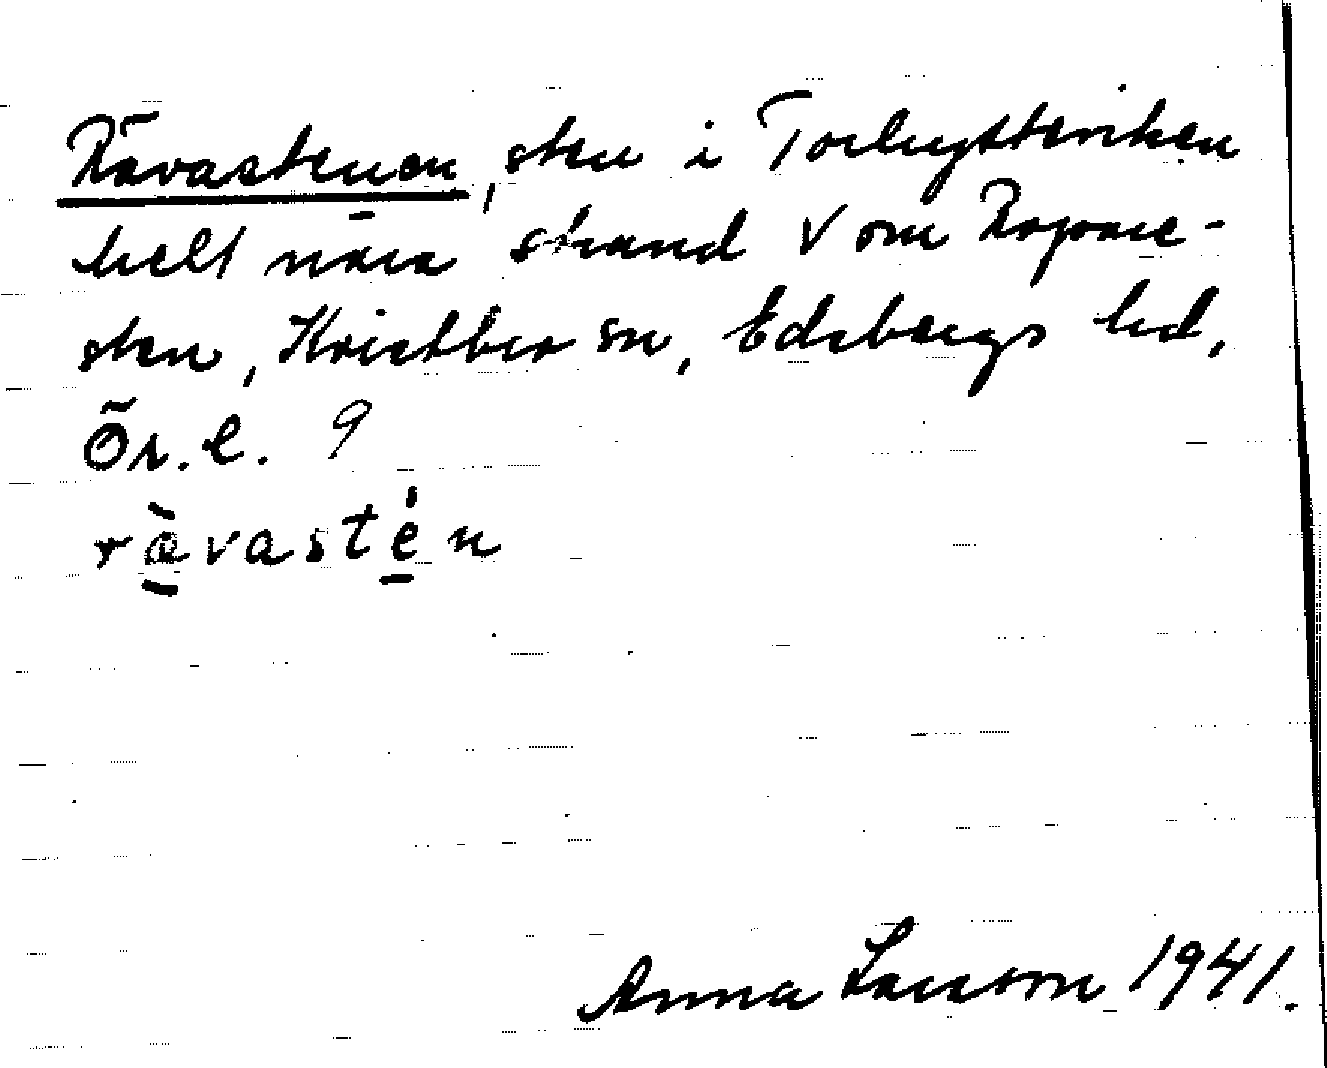 Rävastenen, sten i Torhytteviken
helt nära strand V om Ropare-
sten, Kvistbro sn, Edsbergs hd,
Ör. l. 9
rävasten
Anna Larsson 1941.